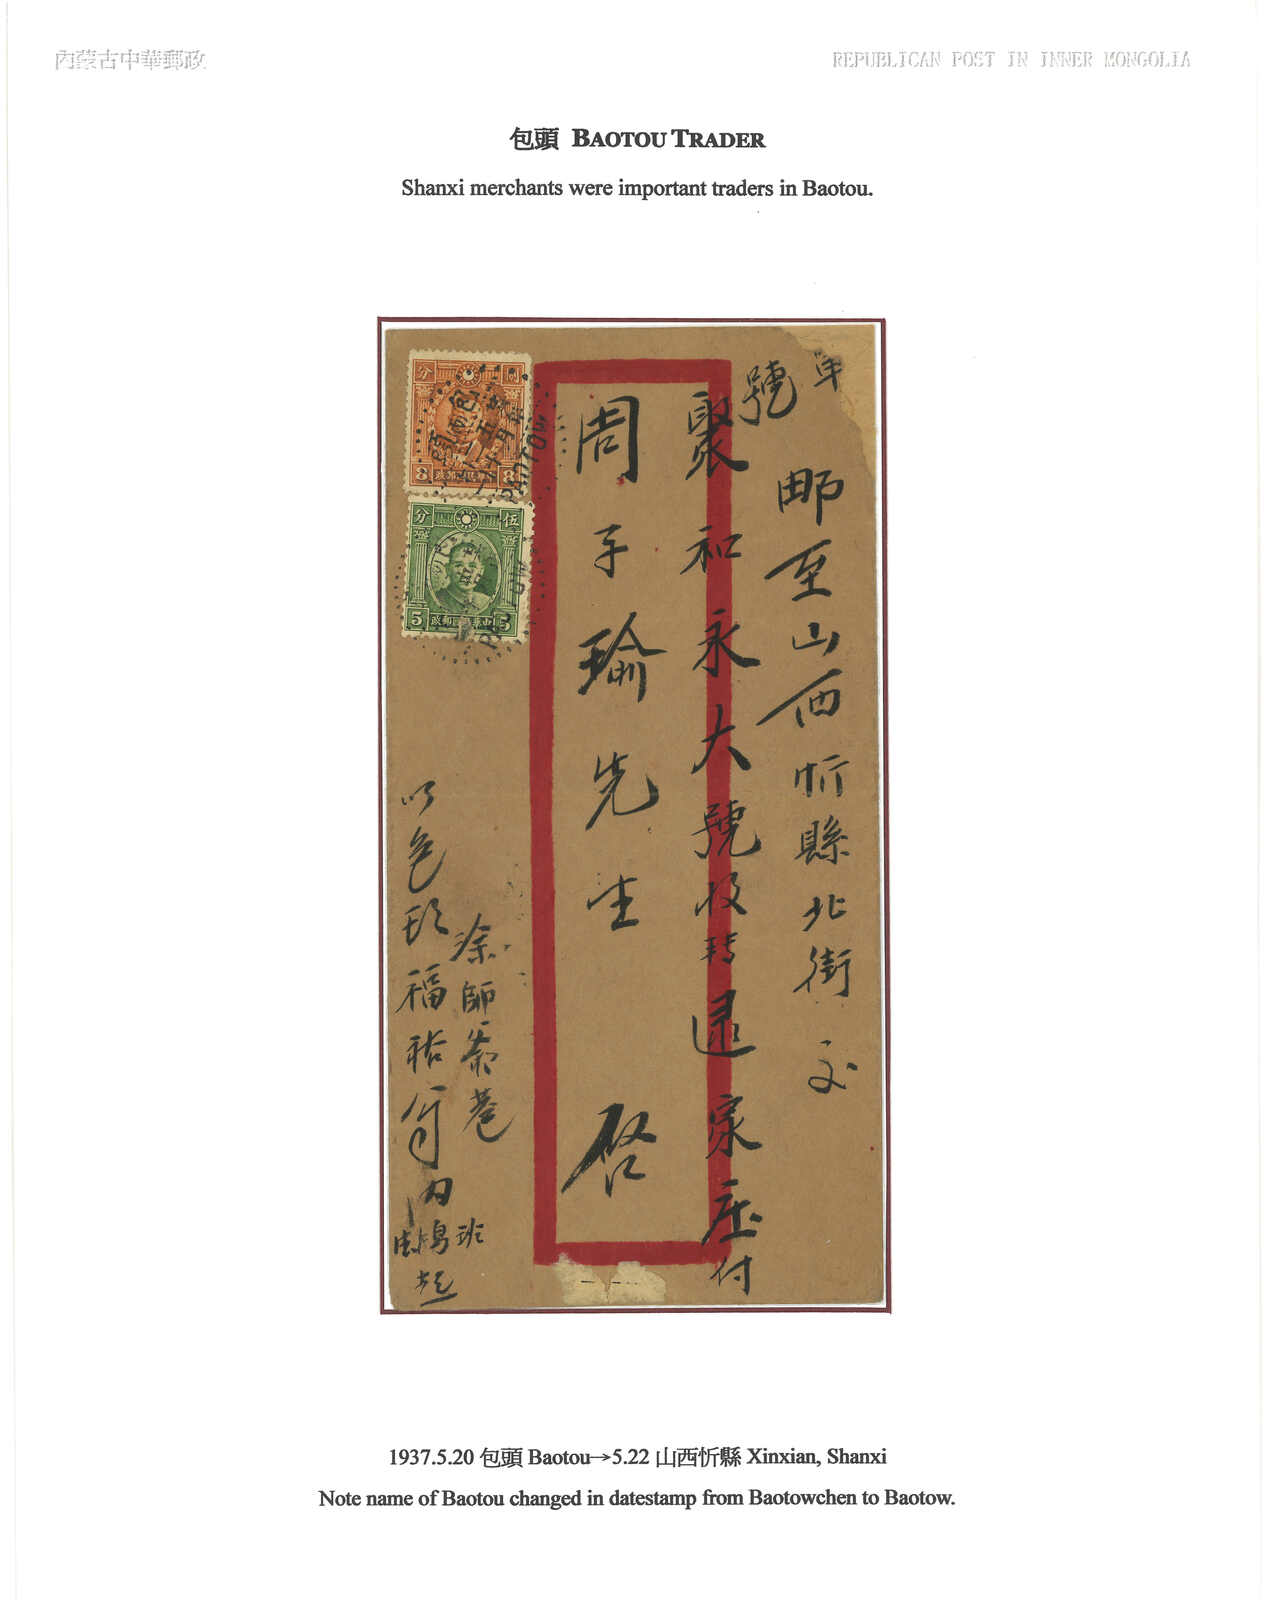 內蒙古中華郵政
REPUBLICAN POST IN INNER MONGOLIA
包頭 BAOTOU TRADER
Shanxi merchants were important traders in Baotou.
號
邮至山西忻縣北街交
聚和永大號收转逯家庄付
周子瑜先生 啓
8 8
分 伍
5 5
PAOTOW
涂師爺巷
福祐
內
1937.5.20 包頭 Baotou→5.22 山西忻縣 Xinxian, Shanxi
Note name of Baotou changed in datestamp from Baotowchen to Baotow.